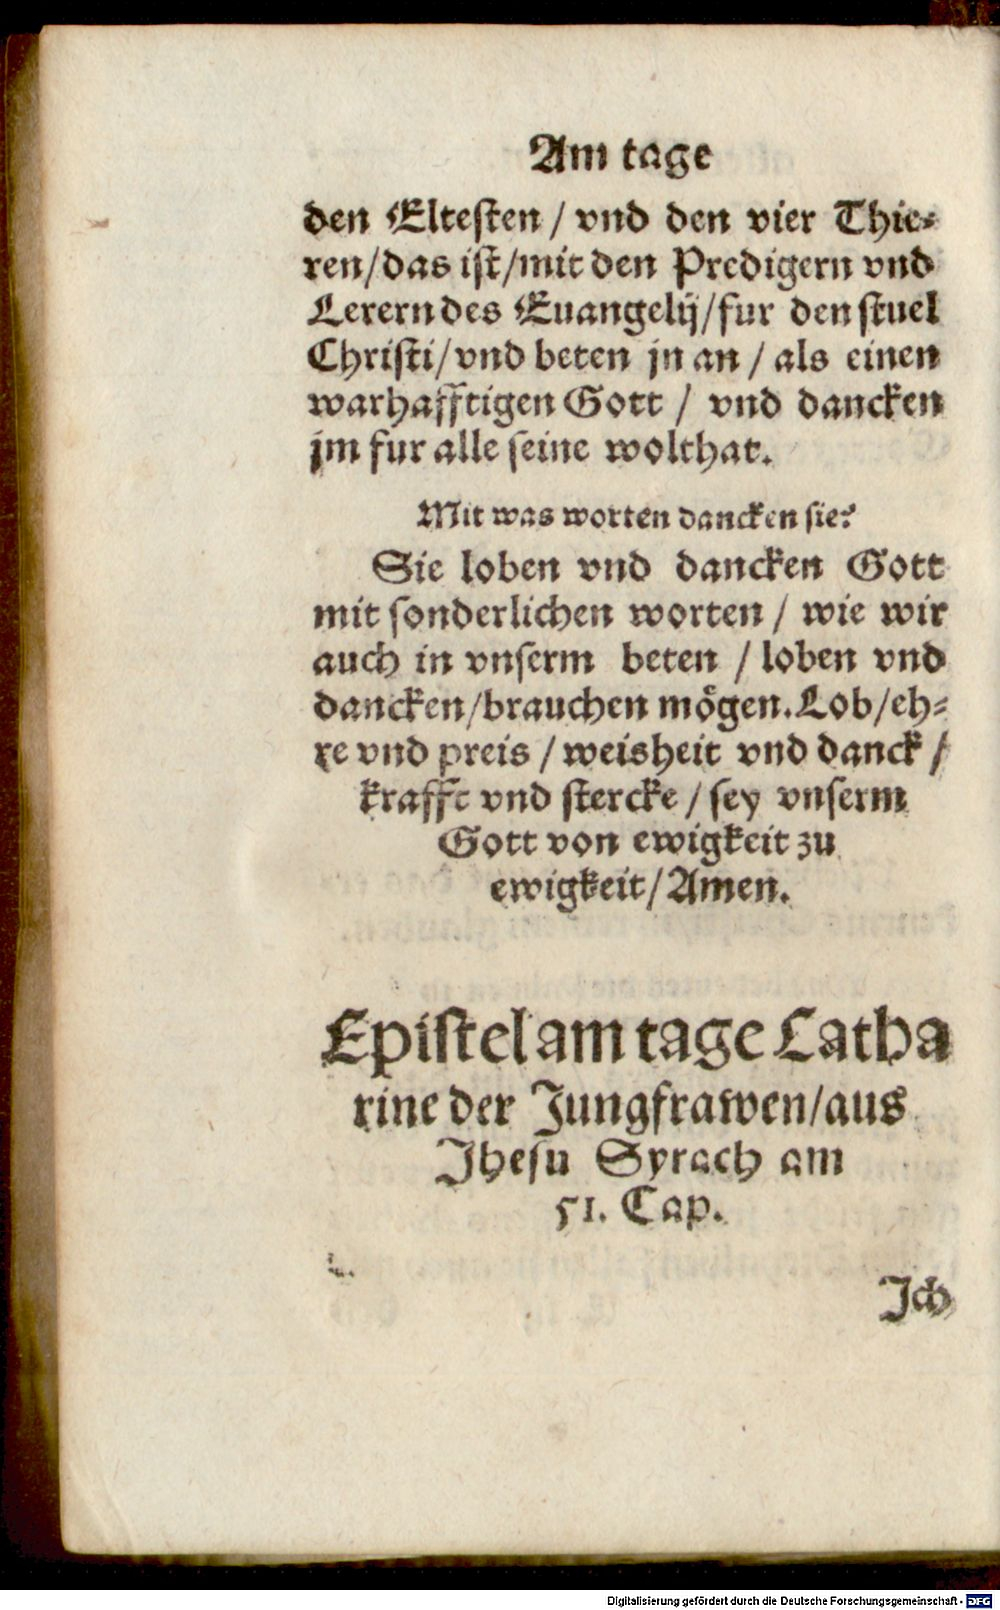 Am tage
den Eltesten / vnd den vier Thie⸗
ren/das ist/mit den Predigern vnd
Lerern des Euangelij/fur den stuel
Christi/vnd beten jn an / als einen
warhafftigen Gott / vnd dancken
jm fur alle seine wolthat.
Mit was worten dancken sie?
Sie loben vnd dancken Gott
mit sonderlichen worten / wie wir
auch in vnserm beten / loben vnd
dancken/brauchen mögen. Lob/eh⸗
re vnd preis / weisheit vnd danck /
krafft vnd stercke / sey vnserm
Gott von ewigkeit zu
ewigkeit/Amen.
Epistel am tage Catha
rine der Jungfrawen/aus
Jhesu Syrach am
51. Cap.
Jch
Digitalisierung gefördert durch die Deutsche Forschungsgemeinschaft - DFG